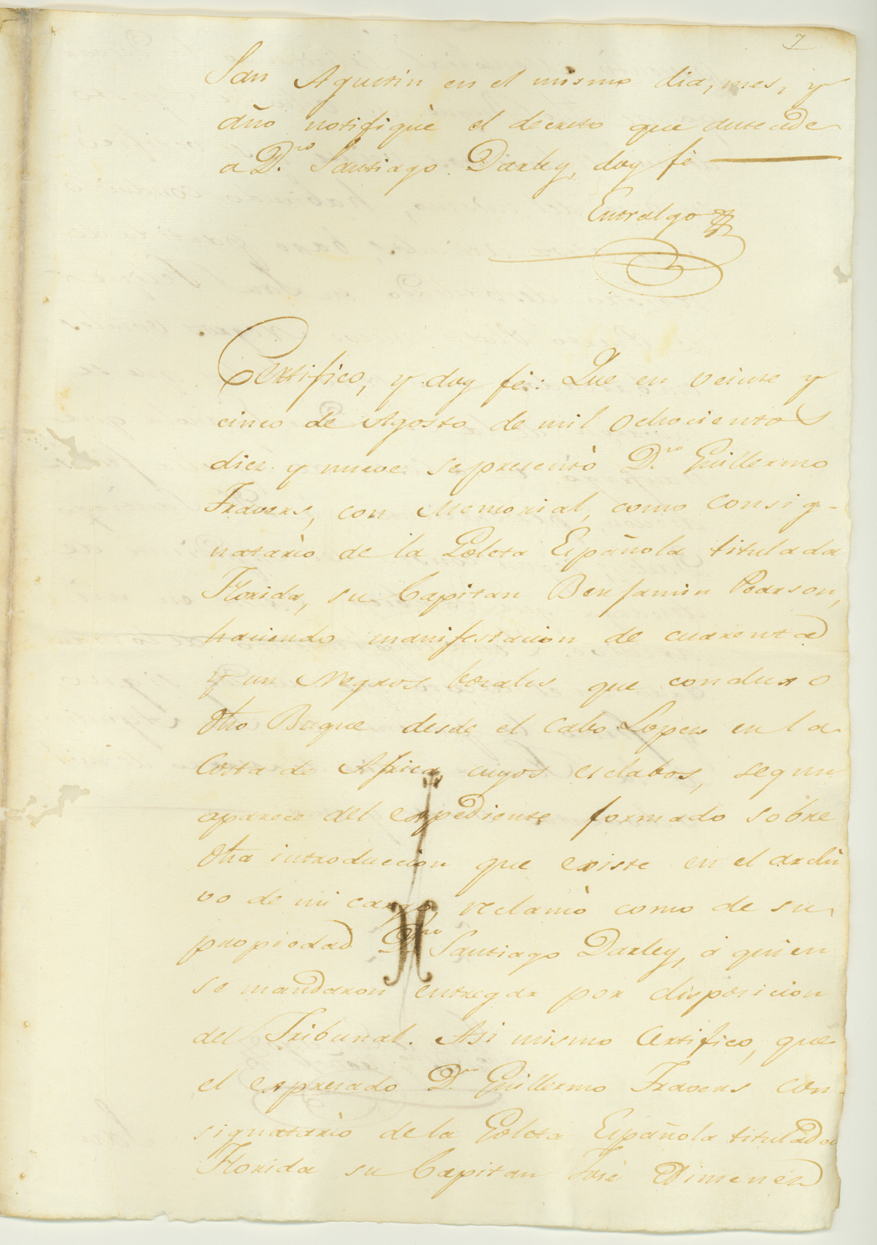 7
San Agustin en el mismo dia, mes, y
año notifiquè el decreto que antecede
a D.n Santiago Darley, doy fè
Entralgo
Certifico, y doy fè: Que en veinte y
cinco de Agosto de mil ochocientos
diez y nueve se presentò D.n Guillermo
Travers, con Memorial, como consig-
natario de la Goleta Española titulada
Florida, su Capitan Benjamin Pearson,
haciendo manifestacion de cuarenta
y un Negros bozales que conduxo
dho Buque desde el Cabo Lopez en la
Costa de Africa cuyos esclabos, segun
aparece del expediente formado sobre
dha introduccion que existe en el archi
vo de mi cargo, reclamò como de su
propiedad D.n Santiago Darley, à quien
se mandaron entregar por disposicion
del Tribunal. Asi mismo Certifico, que
el expresado D.n Guillermo Travers con
signatario de la Goleta Española titulada
Florida su Capitan José Ximenez